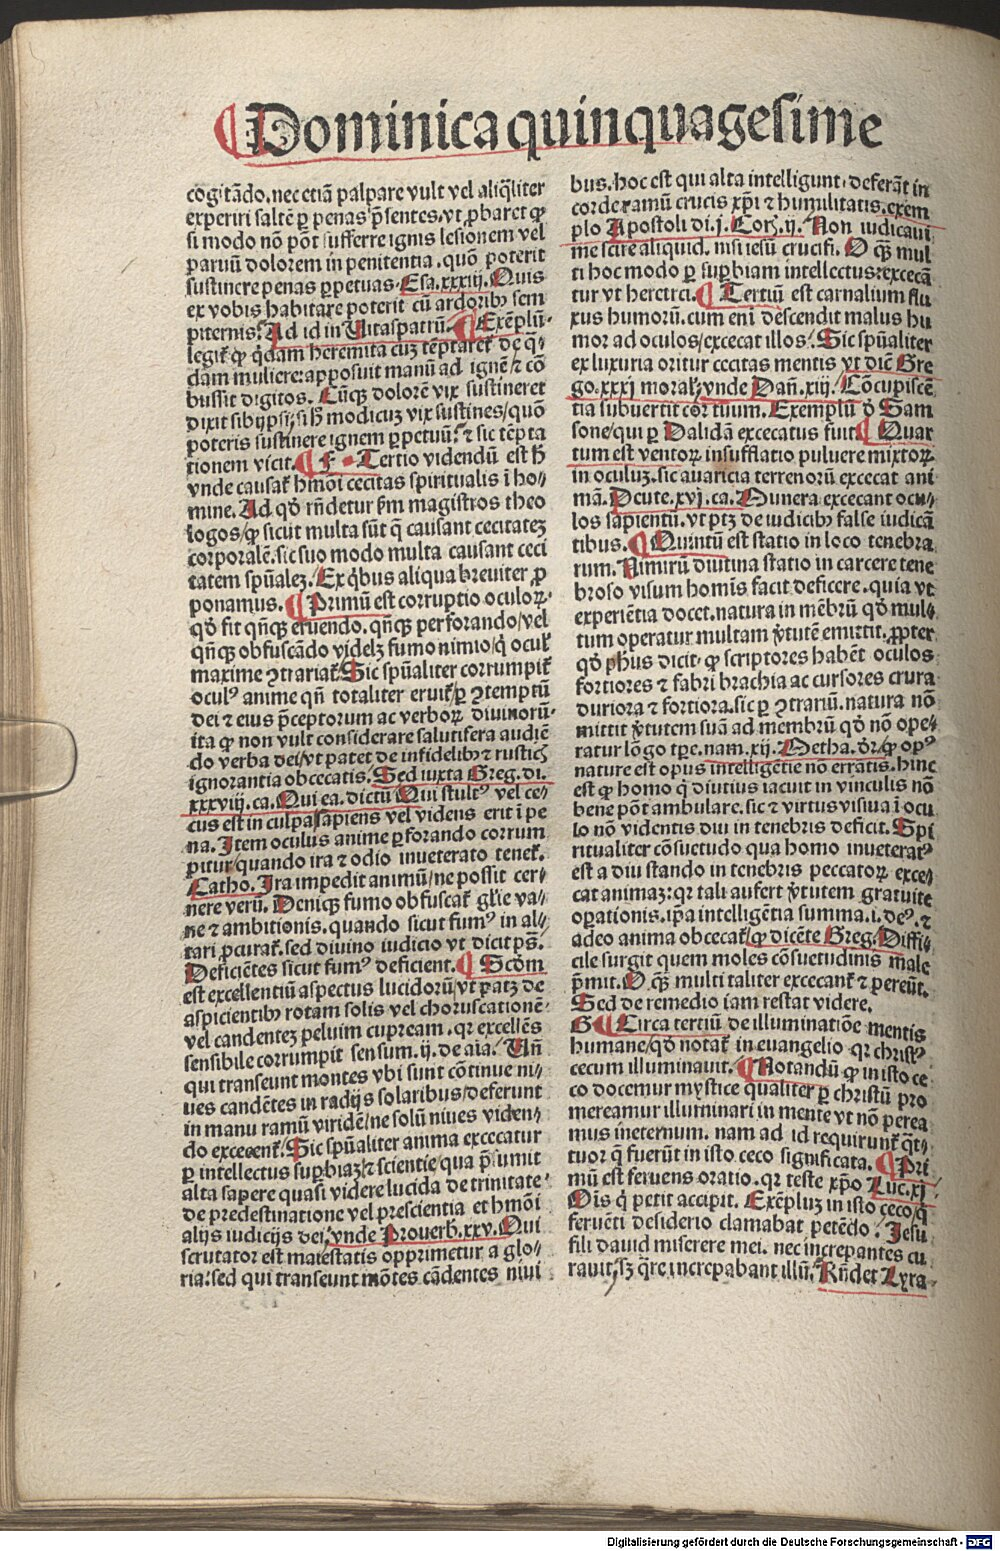 ¶ Dominica quinquagesime
cogitādo. nec etiā palpare vult vel aliq̄liter
experiri saltē ꝑ penas p̄sentes. vt ꝓbaret ꝙ
si modo nō pōt sufferre ignis lesionem vel
paruū dolorem in penitentia. quō poterit
sustinere penas ꝑpetuas. Esa. xxxiij. Quis
ex vobis habitare poterit cū ardoribꝰ sem
piternis. Ad id in Uitaspatrū. ¶ Exēplū.
legit᷑ ꝙ q̄dam heremita cuꝫ tēptaret᷑ de q̄-
dam muliere: apposuit manū ad ignē ⁊ cō
bussit digitos. Cūqꝫ dolorē vix sustineret
dixit sibijpsi/ si hꝰ modicuꝫ vix sustines/ quō
poteris sustinere ignem ꝑpetuū? ⁊ sic tēpta
tionem vicit. ¶ F Tertio videndū est hꝰ
vnde causat᷑ hmōi cecitas spiritualis ī ho/
mine. Ad qd̄ rn̄detur fm magistros theo
logos/ ꝙ sicut multa sūt q̄ causant cecitateꝫ
corporalē. sic suo modo multa causant ceci
tatem sp̄ualeꝫ. Ex q̄bus aliqua breuiter ꝓ
ponamus. ¶ Primū est corruptio oculoꝝ.
qd̄ fit qn̄qꝫ eruendo. qn̄qꝫ perforando/ vel
qn̄qꝫ obfuscādo videlꝫ fumo nimio/ q̄ ocul᷑
maxime ꝯtrariat᷑. Sic sp̄ualiter corrumpit᷑
oculꝰ anime qn̄ totaliter eruit᷑ ꝑ ꝯtemptū
dei ⁊ eius p̄ceptorum ac verboꝝ diuinorū.
ita ꝙ non vult considerare salutifera audiē
do verba dei/ vt patet de infidelibꝰ ⁊ rusticꝭ
ignorantia obcecatis. Sed iuxta Greg. di.
xxxviij. ca. Qui ea. dictū Qui stultꝰ vel ce/
cus est in culpa/ sapiens vel videns erit ī pe
na. Item oculus anime ꝑforando corrum
pitur/ quando ira ⁊ odio inueterato tenet᷑.
Catho. Ira impedit animū/ ne possit cer/
nere verū. Deniqꝫ fumo obfuscat᷑ gl̄ie va/
ne ⁊ ambitionis. quando sicut fumꝰ in al/
tari ꝓcurat᷑. sed diuino iudicio vt dicit ps̄.
Deficiētes sicut fumꝰ deficient. ¶ Scd̄m
est excellentiū aspectus lucidorū/ vt patꝫ de
aspicientibꝰ rotam solis vel choruscationē
vel candenteꝫ peluim cupream. qꝛ excellēs
sensibile corrumpit sensum. ij. de aīa. Un̄
qui transeunt montes vbi sunt cōtinue ni/
ues candētes in radijs solaribus/ deferunt
in manu ramū viridē/ ne solū niues viden/
do excecent᷑. Sic sp̄ualiter anima excecatur
ꝑ intellectus suꝑbiaꝫ ⁊ scientie/ qua p̄sumit
alta sapere quasi videre lucida de trinitate
de predestinatione vel prescientia et hmōi
alijs iudicijs dei. vnde Prouerb. xxv. Qui
scrutator est maiestatis opprimetur a glo/
ria: sed qui transeunt mōtes cādentes niui
bus. hoc est qui alta intelligunt. deferāt in
corde ramū crucis xp̄i ⁊ humilitatis. exem
plo Apostoli di. j. Corꝭ. ij. Non iudicaui
me scire aliquid. nisi iesū crucifi. O qꝫ mul
ti hoc modo ꝑ suꝑbiam intellectus excecā
tur vt heretici. ¶ Tertiū est carnalium flu
xus humorū. cum enī descendit malus hu
mor ad oculos/ excecat illos. Sic sp̄ualiter
ex luxuria oritur cecitas mentis vt dicē Gre
go. xxxj moral᷑. vnde Dan̄. xiij. Cōcupiscē
tia subuertit cor tuum. Exemplū d̄ Sam
sone/ qui ꝑ Dalidā excecatus fuit. ¶ Quar
tum est ventoꝝ insufflatio puluere mixtoꝝ
in oculuꝫ. sic auaricia terrenorū excecat ani
mā. Deute. xvj. ca. Munera excecant ocu/
los sapientū. vt ptꝫ de iudicibꝰ false iudicā
tibus. ¶ Quintū est statio in loco tenebra
rum. Nimirū diutina statio in carcere tene
broso visum homīs facit deficere. quia vt
experiētia docet. natura in mēbrū qd̄ mul/
tum operatur multam v̄tutē emittit. ꝓpter
qd̄ ph̄us dicit. ꝙ scriptores habēt oculos
fortiores ⁊ fabri brachia ac cursores crura
duriora ⁊ fortiora. sic ꝑ ꝯtrariū. natura nō
mittit v̄tutem suā ad membrū qd̄ nō ope/
ratur lōgo tꝑe. nam. xij. Metha. dr̄. ꝙ opꝰ
nature est opus intelligētie nō erratis. hinc
est ꝙ homo q̄ diutius iacuit in vinculis nō
bene pōt ambulare. sic ⁊ virtus visiua ī ocu
lo nō videntis diu in tenebris deficit. Spi
ritualiter cōsuetudo qua homo inueteratꝰ
est a diu stando in tenebris peccatoꝝ exce/
cat animaꝫ: qꝛ tali aufert v̄tutem gratuite
oꝑationis. ip̄a intelligētia summa. i. deꝰ. ⁊
adeo anima obcecat᷑/ ꝙ dicēte Greg. Diffi/
cile surgit quem moles cōsuetudinis male
p̄mit. O qꝫ multi taliter excecant᷑ ⁊ pereūt.
Sed de remedio iam restat videre.
G ¶ Circa tertiū de illuminatiōe mentis
humane/ qd̄ notat᷑ in euangelio qꝛ christꝰ
cecum illuminauit. ¶ Notandū ꝙ in isto ce
co docemur mystice qualiter ꝑ christū pro
mereamur illuminari in mente vt nō perea
mus ineternum. nam ad id requirunt᷑ q̄t/
tuor q̄ fuerūt in isto ceco significata. ¶ Pri
mū est feruens oratio. qꝛ teste xp̄o Luc. xj
Oīs q̄ petit accipit. Exēpluꝫ in isto ceco/ q̄
feruēti desiderio clamabat petēdo. Jesu
fili dauid miserere mei. nec increpantes cu
rauit. sꝫ q̄re increpabant illū. Rn̄det Lyra
Digitalisierung gefördert durch die Deutsche Forschungsgemeinschaft - DFG